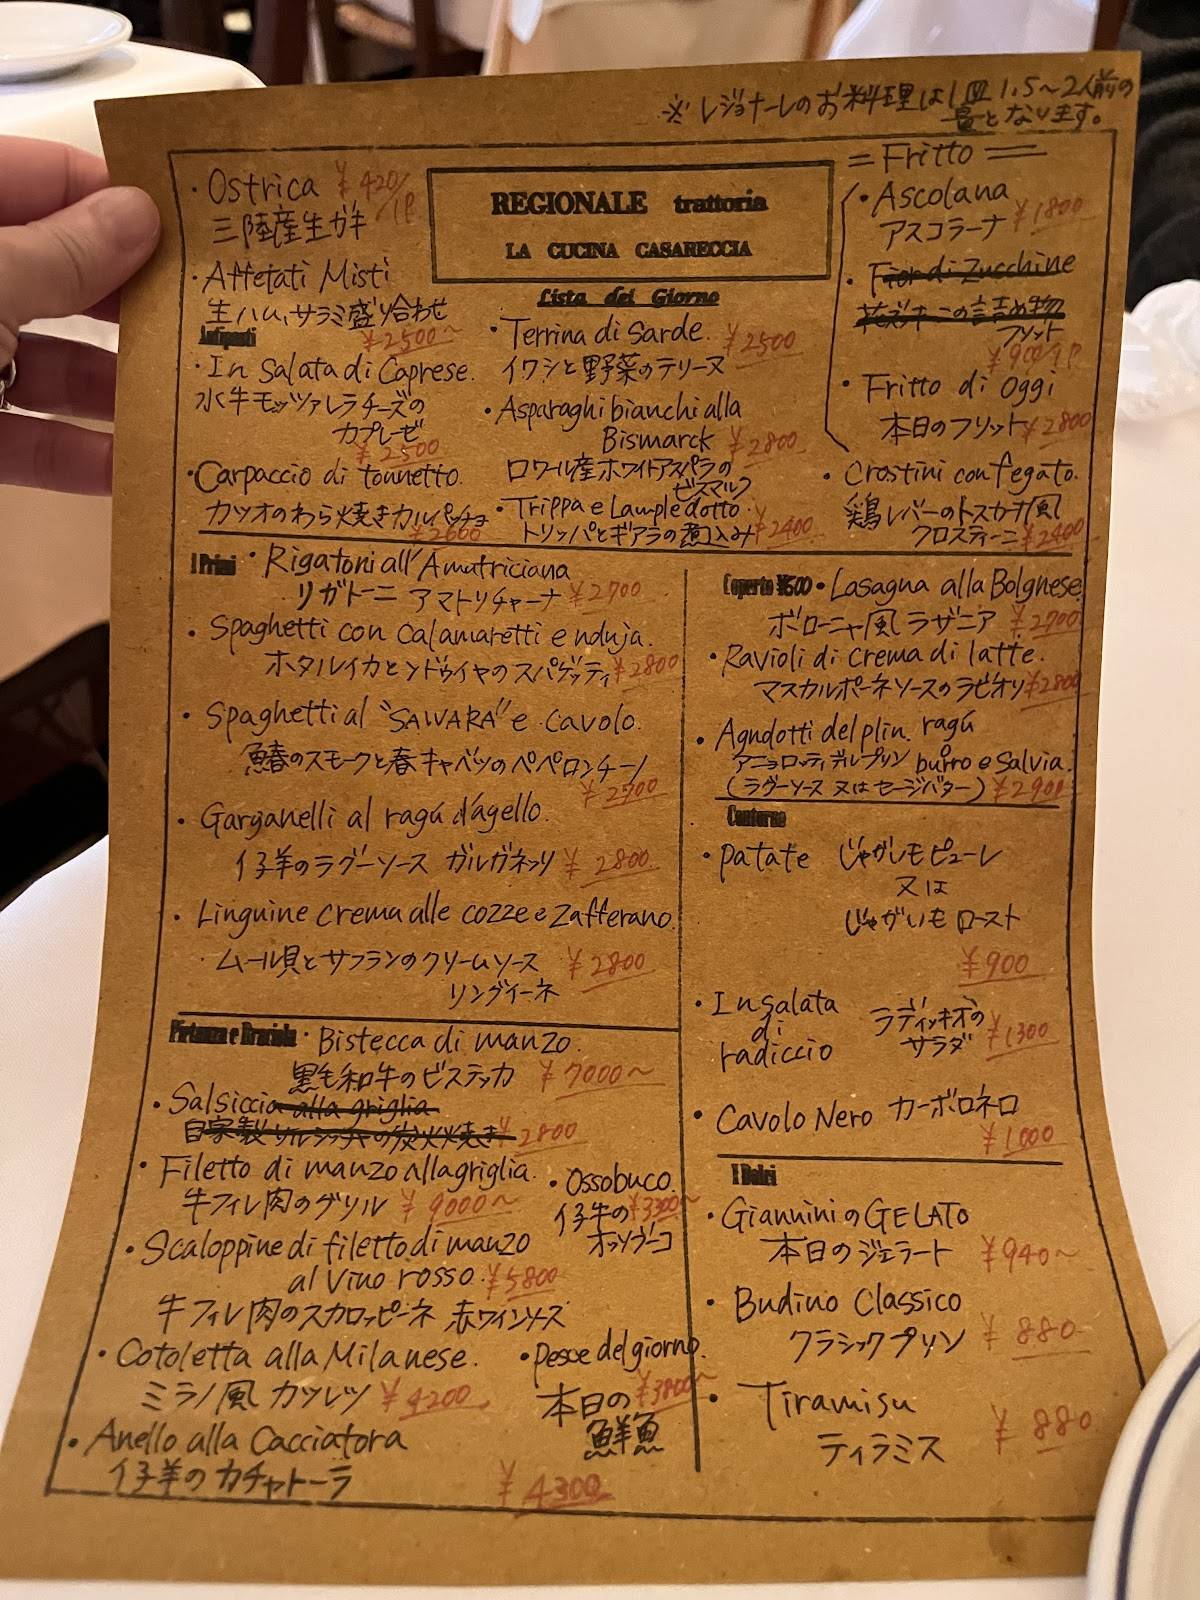 ※ レジョナーレのお料理は1皿 1.5〜2人前の
量となります。
REGIONALE trattoria
LA CUCINA CASARECCIA
Lista del Giorno
・Ostrica ¥420/1P
三陸産生ガキ
・Affetati Misti
生ハム,サラミ盛り合わせ
¥2500〜
Antipasti
・In Salata di Caprese.
水牛モッツァレラチーズの
カプレーゼ
¥2500
・Carpaccio di tonnetto.
カツオのわら焼きカルパッチョ
¥2600
・Terrina di Sarde. ¥2500
イワシと野菜のテリーヌ
・Asparaghi bianchi alla
Bismarck ¥2800
ロワール産ホワイトアスパラの
ビスマルク
・Trippa e Lampledotto.
トリッパとギアラの煮込み ¥2400
= Fritto =
・Ascolana
アスコラーナ ¥1800
・Fior di Zucchine
花ズッキーニの詰め物
フリット
¥900/1P
・Fritto di Oggi
本日のフリット ¥2800
・Crostini con fegato.
鶏レバーのトスカーナ風
クロスティーニ ¥2400
I Primi
・Rigatoni all'Amatriciana
リガトーニ アマトリチャーナ ¥2700
・Spaghetti con Calamaretti e nduja.
ホタルイカとンドゥイヤのスパゲッティ ¥2800
・Spaghetti al "SAWARA" e cavolo.
鰆のスモークと春キャベツのペペロンチーノ
¥2700
・Garganelli al ragú d'agello.
仔羊のラグーソース ガルガネッリ ¥2800
・Linguine crema alle cozze e Zafferano.
ムール貝とサフランのクリームソース ¥2800
リングイーネ
Coperto ¥500
・Lasagna alla Bolgnese
ボローニャ風 ラザニア ¥2700
・Ravioli di crema di latte.
マスカルポーネソースのラビオリ ¥2800
・Agndotti del plin. ragú
アニョロッティデルプリン burro e Salvia.
(ラグーソース 又は セージバター) ¥2900
Contorno
・patate じゃがいもピューレ
又は
じゃがいもロースト
¥900
・Insalata
di
radiccio
ラディッキオの
サラダ ¥1300
・Cavolo Nero カーボロネロ
¥1000
Pietanza e Braciola
・Bistecca di manzo.
黒毛和牛のビステッカ ¥7000〜
・Salsiccia alla griglia
自家製サルシッチャの炭火焼き ¥2800
・Filetto di manzo Allagriglia.
牛フィレ肉のグリル ¥9000〜
・Ossobuco.
仔牛の ¥3300〜
オッソブーコ
・Scaloppine di filetto di manzo
al vino rosso. ¥5800
牛フィレ肉のスカロッピーネ 赤ワインソース
・Cotoletta alla Milanese.
ミラノ風 カツレツ ¥4200
・Pesce del giorno.
本日の ¥3800〜
鮮魚
・Anello alla Cacciatora
仔羊のカチャトーラ
¥4300
I Dolci
・GianniniのGELATO
本日のジェラート ¥940〜
・Budino Classico
クラシックプリン ¥880
・Tiramisu
ティラミス ¥880